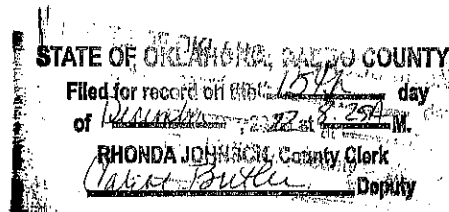 STATE OF OKLAHOMA, CADDO COUNTY
Filed for record on this 15th day
of December, 2022 at 8:25A M.
RHONDA JOHNSON, County Clerk
Butler Deputy